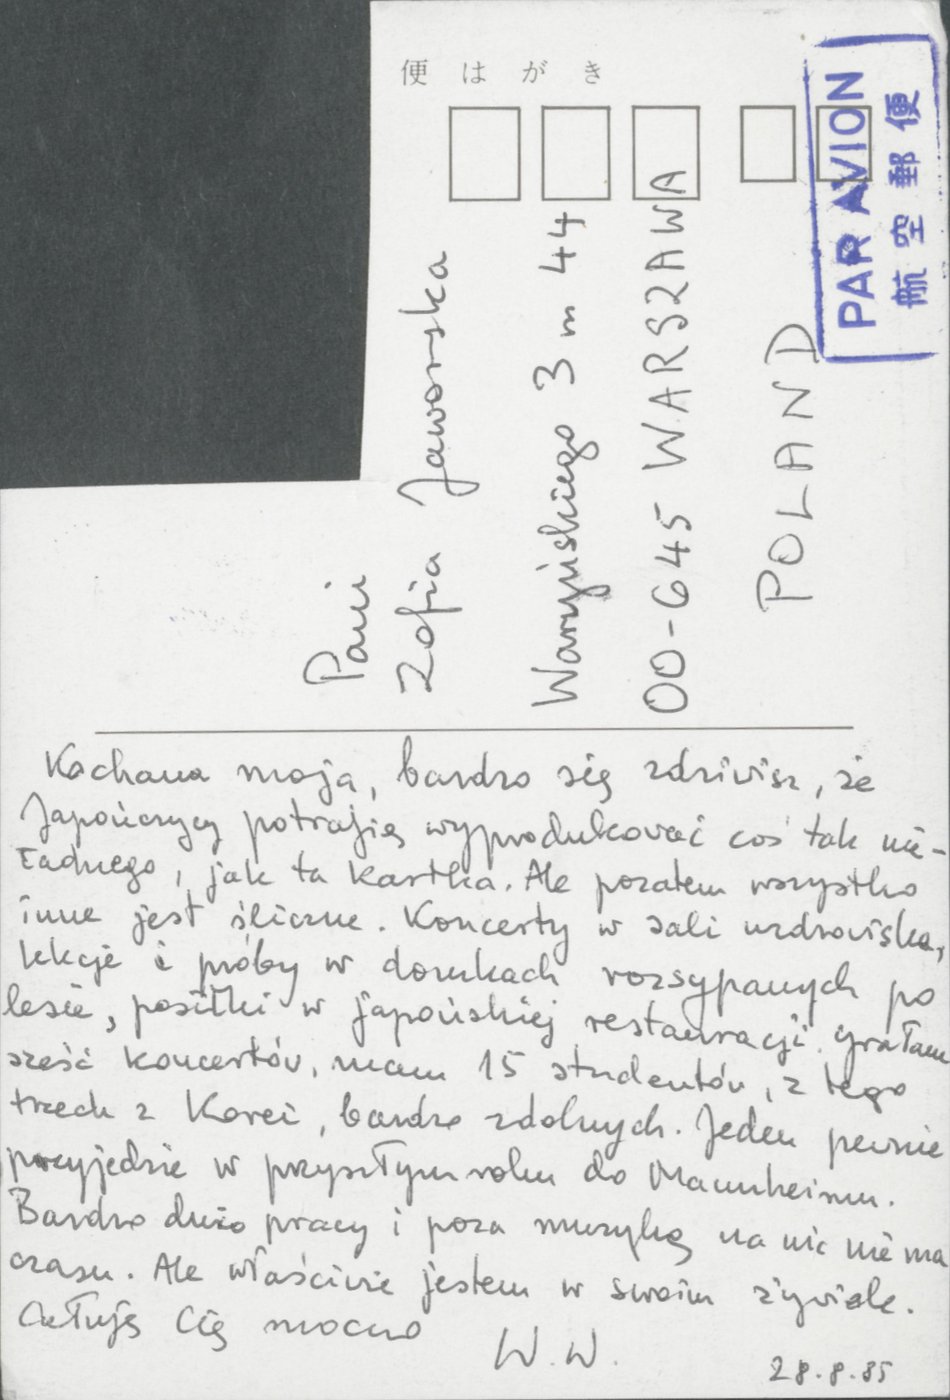 便はがき
PAR AVION
航空郵便
Pani
Zofia Jaworska
Waryńskiego 3 m 44
00-645 WARSZAWA
POLAND
Kochana moja, bardzo się zdziwisz, że
Japończycy potrafią wyprodukować coś tak nie-
ładnego, jak ta kartka. Ale pozatem wszystko
inne jest śliczne. Koncerty w sali uzdrowiska,
lekcje i próby w domkach rozsypanych po
lesie, posiłki w japońskiej restauracji. Grałam
sześć koncertów, mam 15 studentów, z tego
trzech z Korei, bardzo zdolnych. Jeden pewnie
przyjedzie w przyszłym roku do Mannheimu.
Bardzo dużo pracy i poza muzyką na nic nie ma
czasu. Ale właściwie jestem w swoim żywiole.
Całuję Cię mocno
W.W.
28.8.85